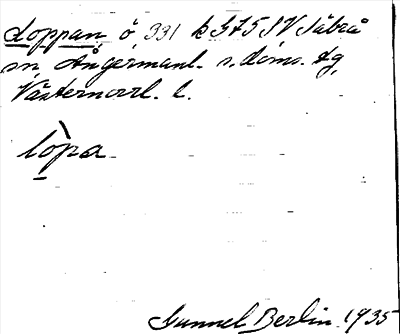 Loppan, ö 331 k G75 SV Säbrå
sn, Ångermanl. s. döms. tg,
Västernorrl. l.
lòpa
Gunnel Berlin 1935